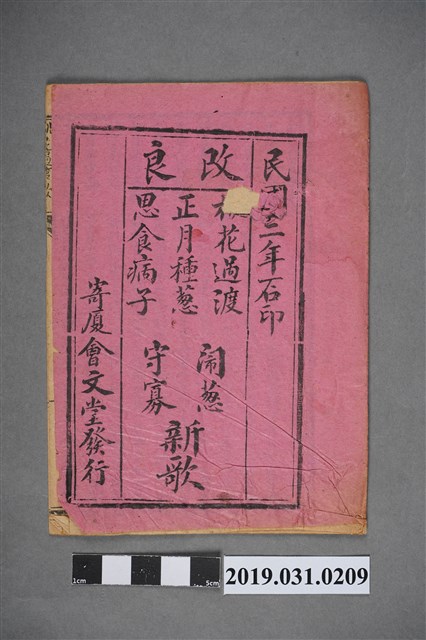 民國三年石印
改良
花過渡
正月種葱
思食病子
闹葱
守寡
新歌
寄廈會文堂發行
1cm
5cm
2019.031.0209